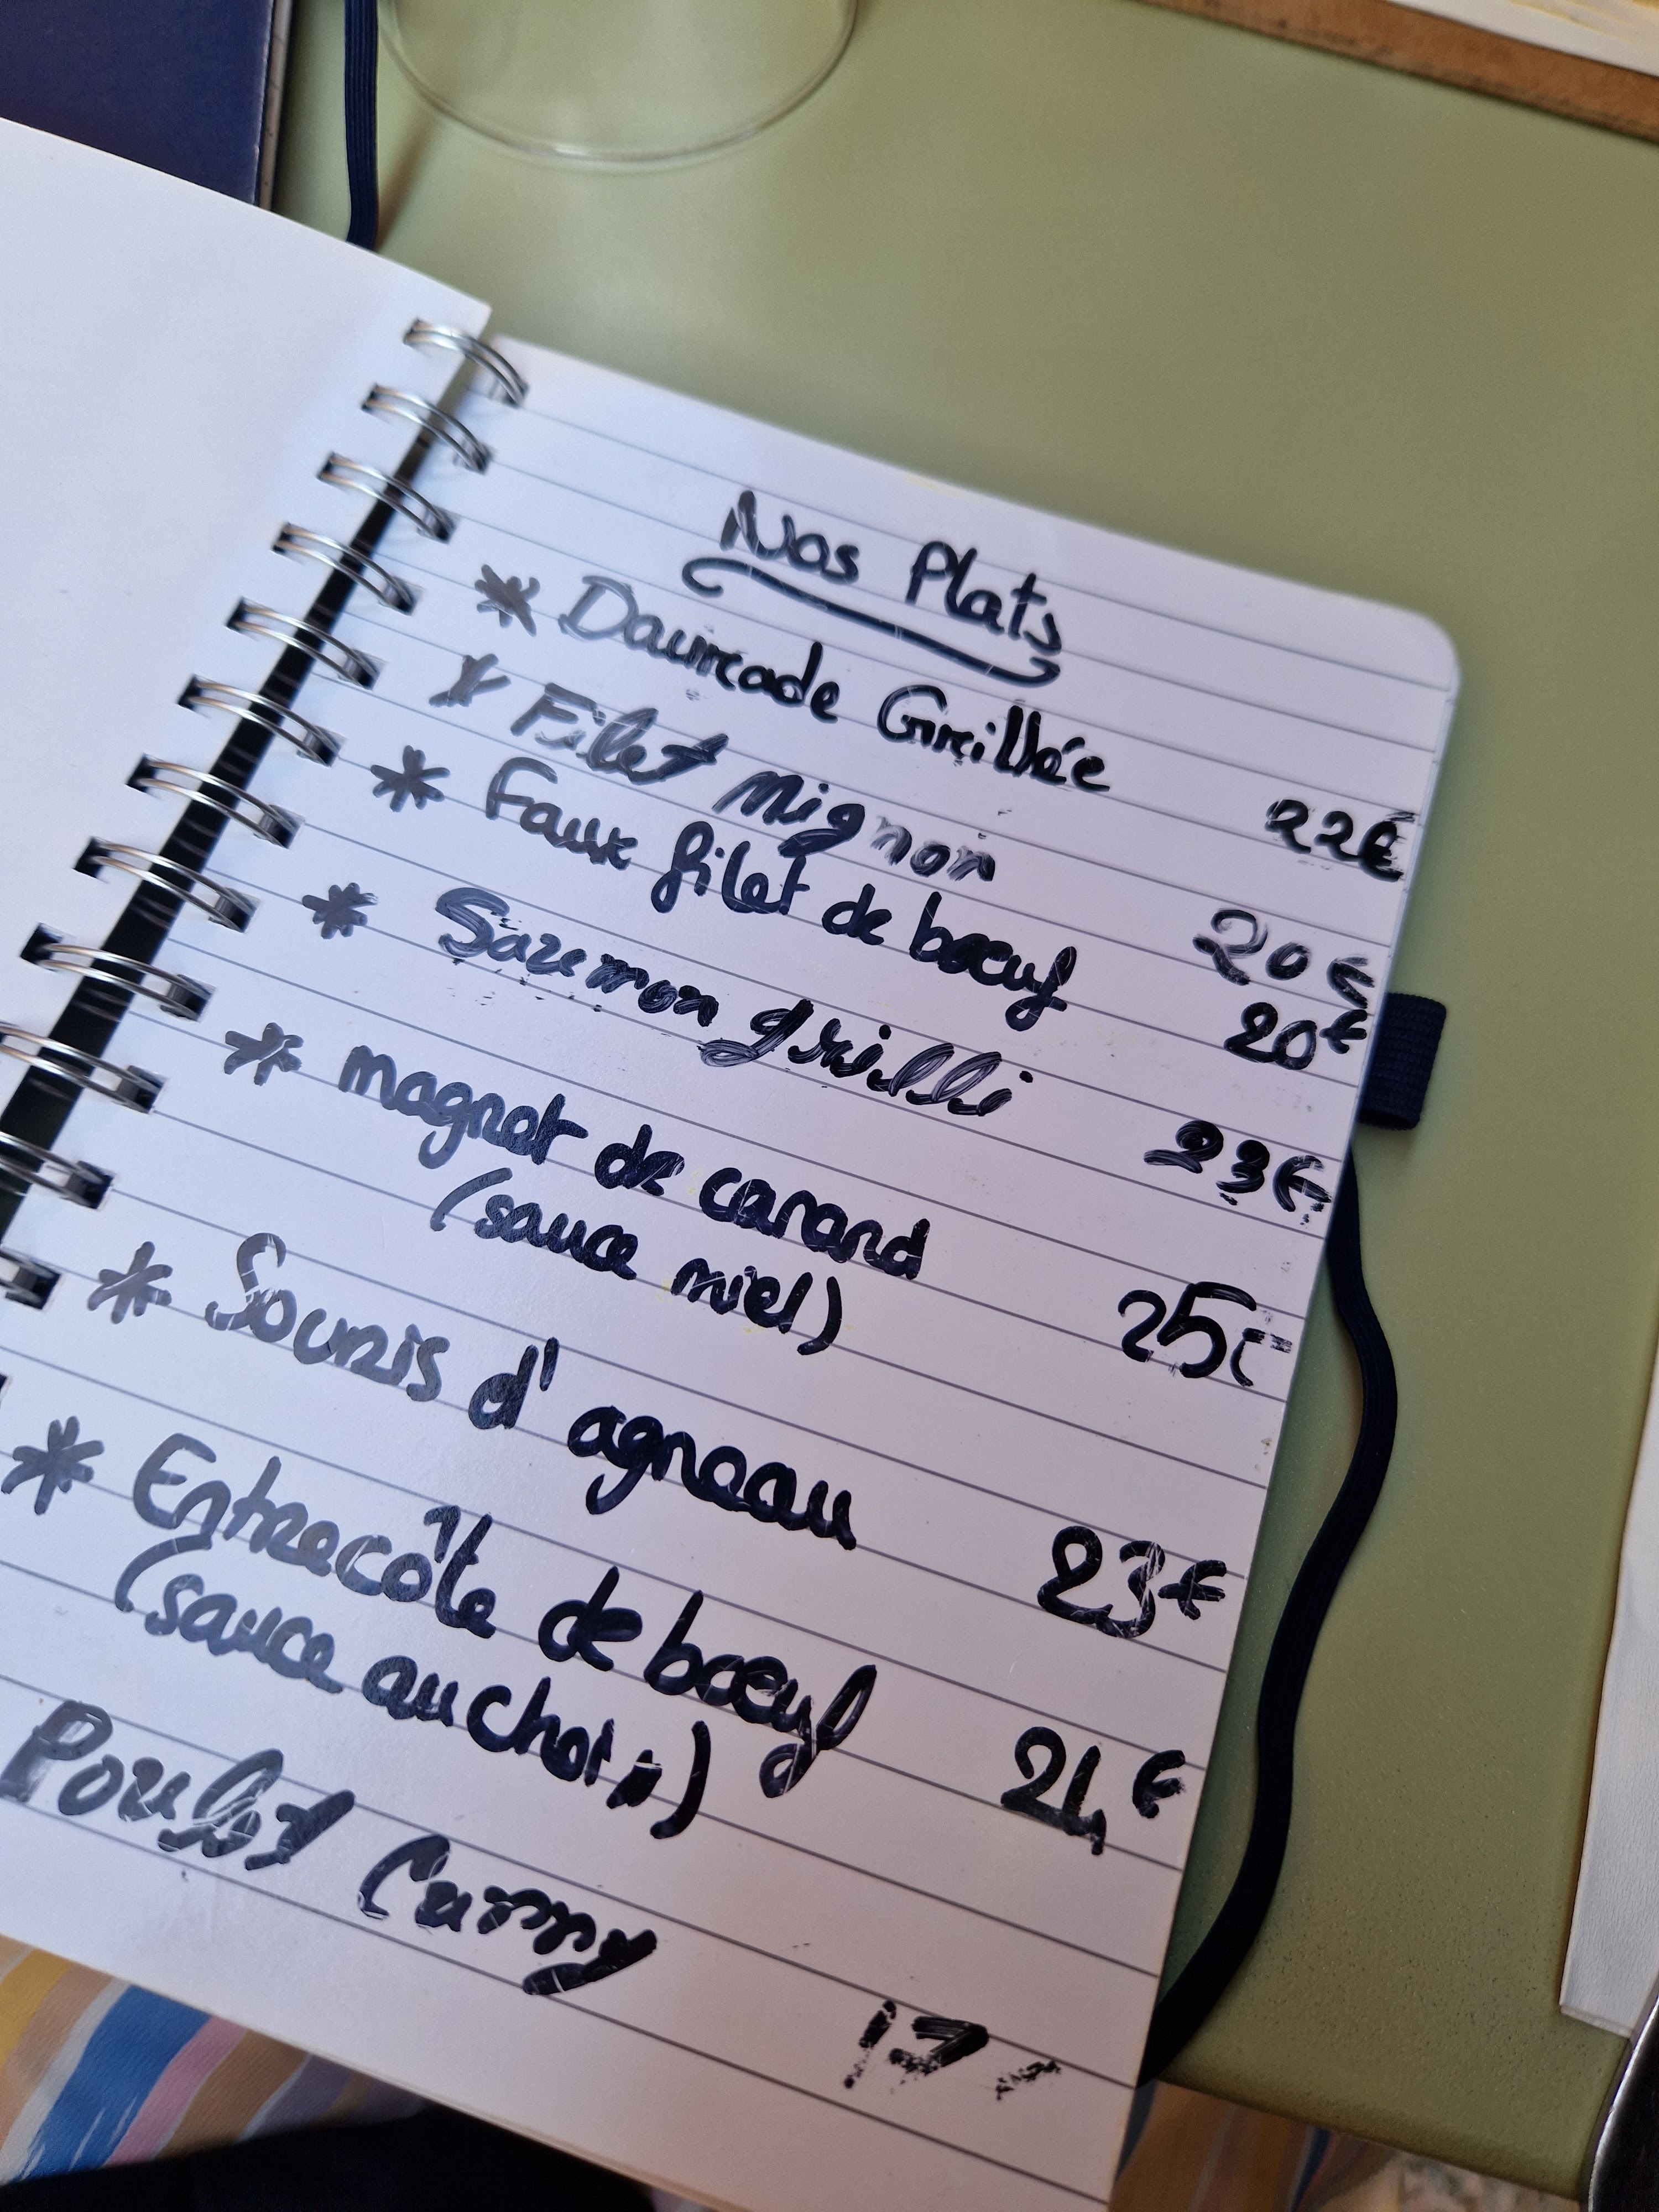 Nos Plats
* Daurade Grillée 22€
* Filet Mignon 20€
* Faux filet de bœuf 20€
* Saumon grillé 23€
* magret de canard 25€
(sauce miel)
* Souris d'agneau 23€
* Entrecôte de bœuf 24€
(sauce au choix)
Poulet Curry 17